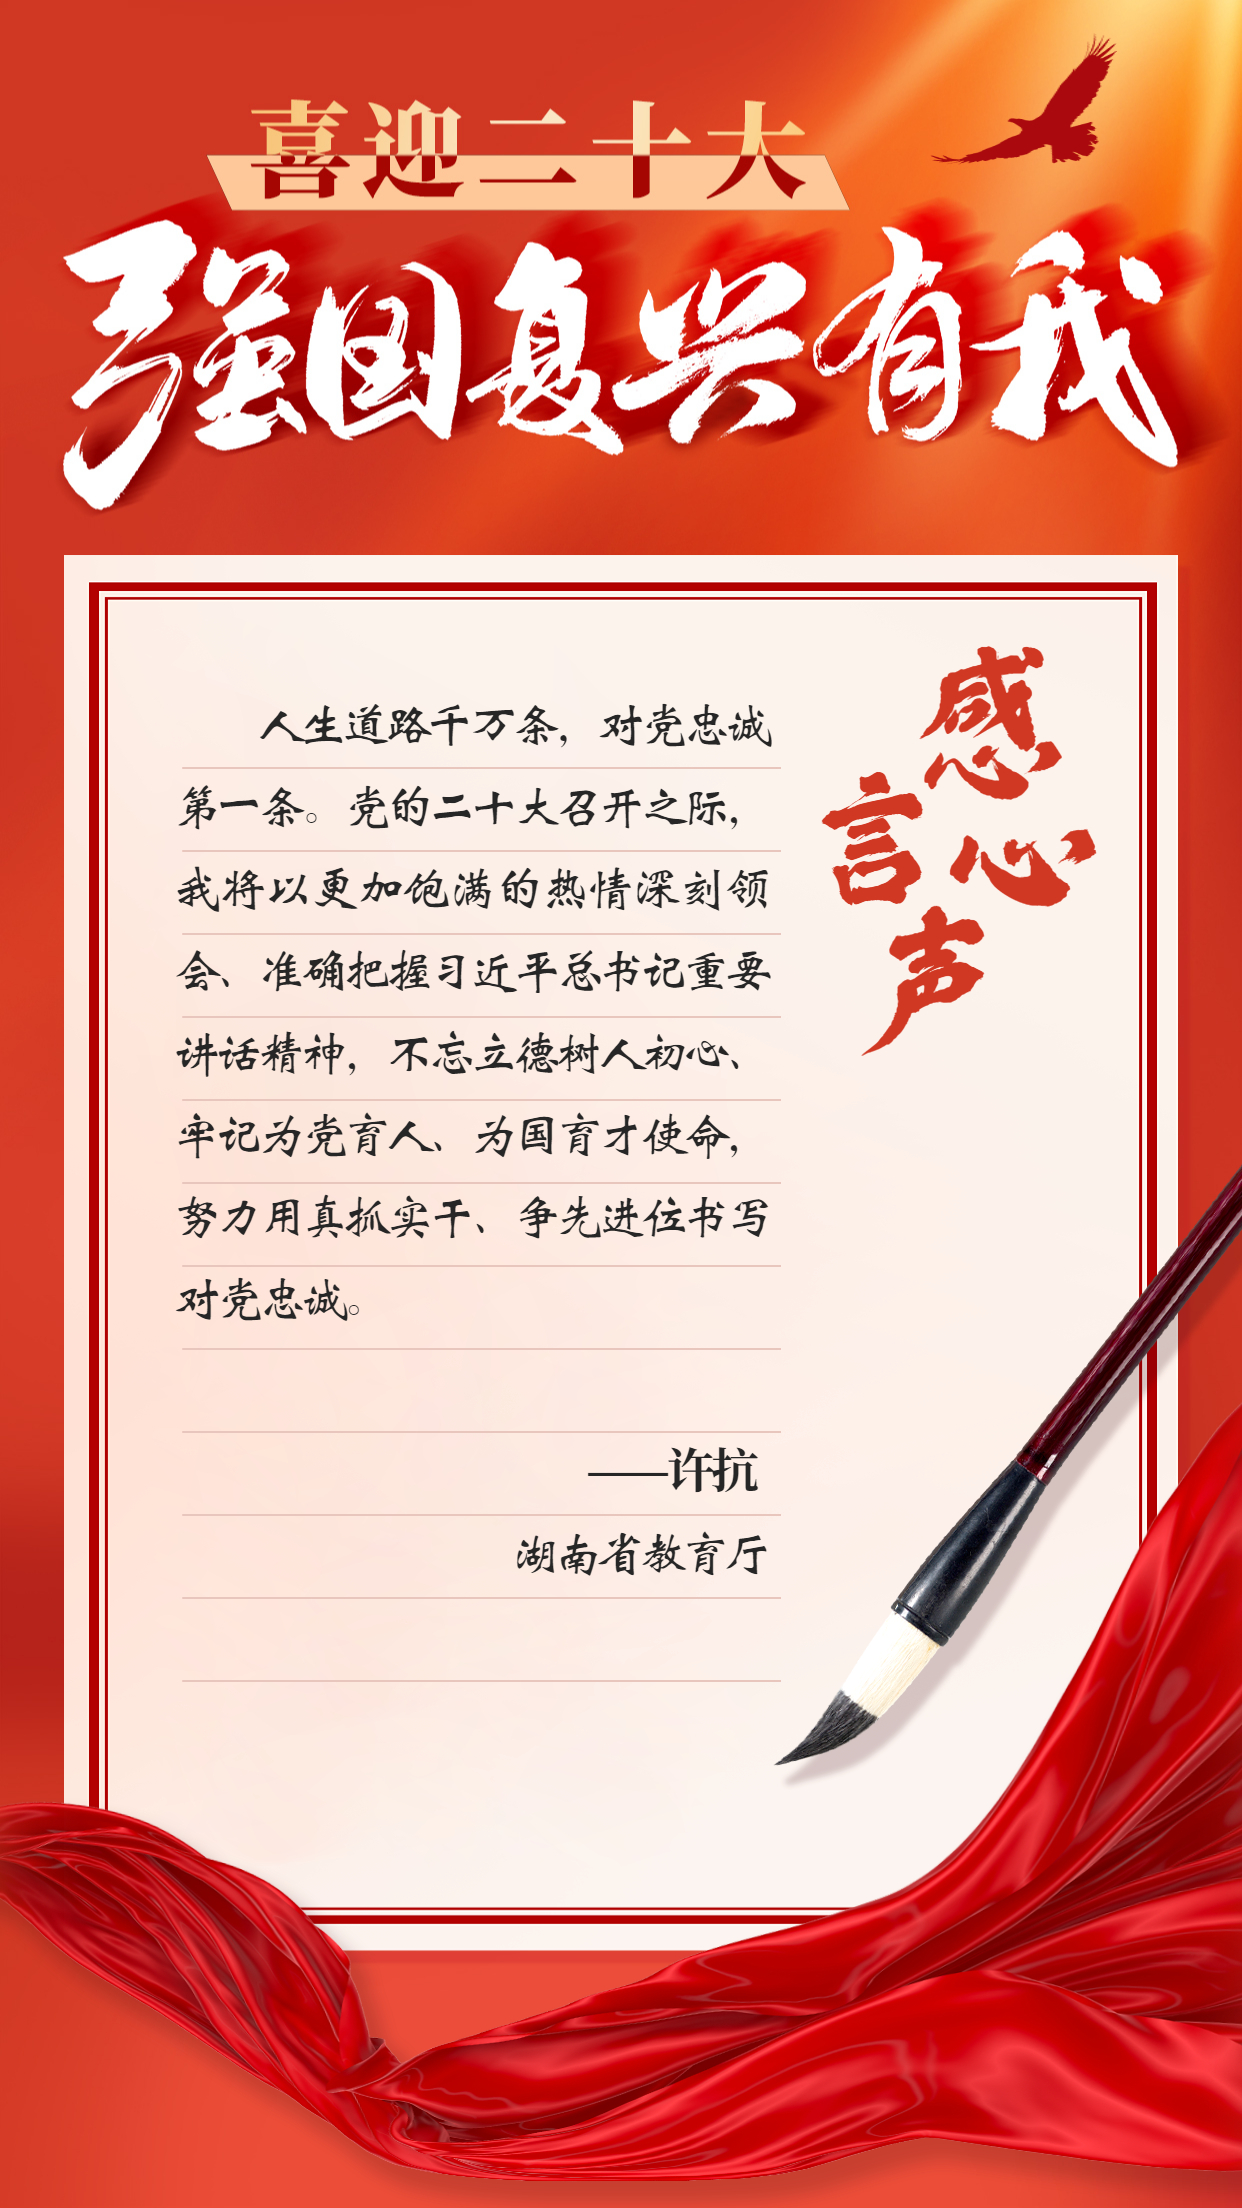 喜迎二十大
强国复兴有我
感言心声
人生道路千万条，对党忠诚
第一条。党的二十大召开之际，
我将以更加饱满的热情深刻领
会、准确把握习近平总书记重要
讲话精神，不忘立德树人初心、
牢记为党育人、为国育才使命，
努力用真抓实干、争先进位书写
对党忠诚。
——许抗
湖南省教育厅